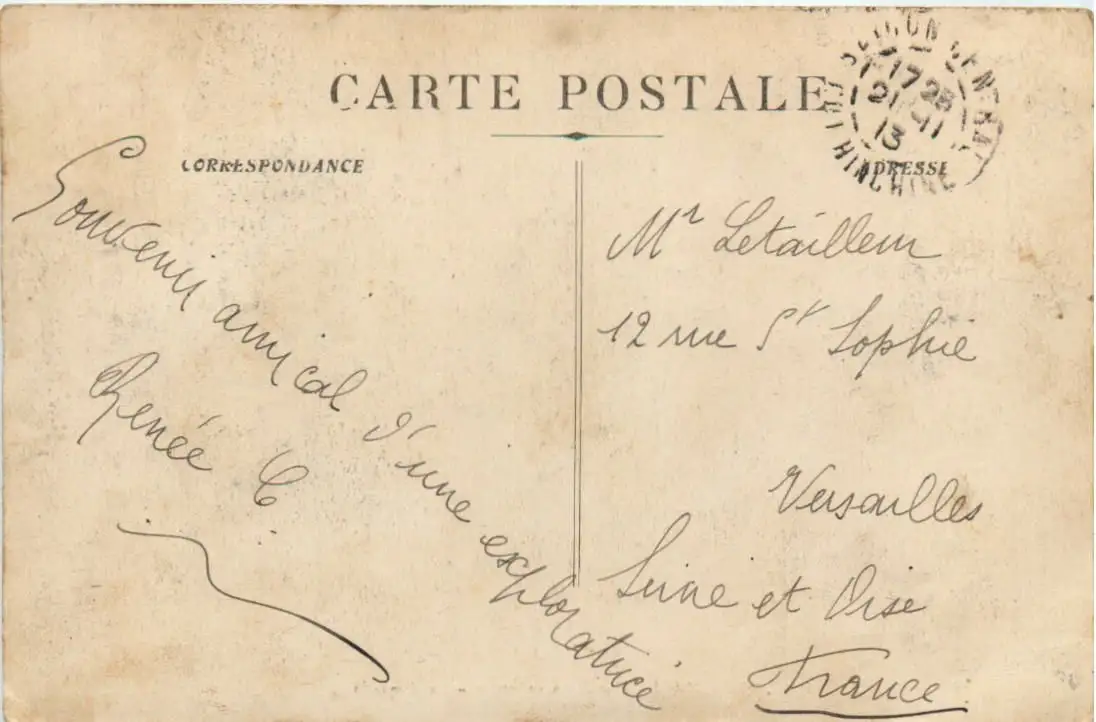 CARTE POSTALE
CORRESPONDANCE
ADRESSE
SAIGON CENTRAL
17 25
21 11
13
COCHINCHINE
Souvenir amical d'une exploratrice
Renée C.
Mr Letailleur
12 rue St Sophie
Versailles
Seine et Oise
France